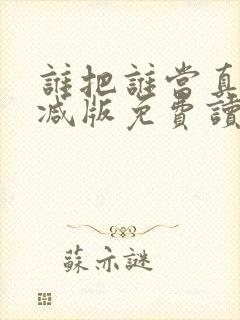 誰把誰當真
減版免費讀
蘇亦謎